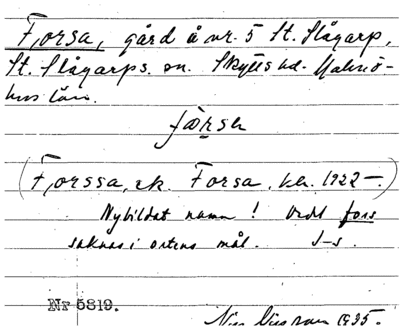 Forsa, gård å nr. 5 St. Slågarp,
St. Slågarps sn. Skytts hd. Malmö-
hus län.
(Forssa, ek. Forsa, kbr. 1922–.)
Nybildat namn! Ordet fors
saknas i ortens mål. J-s.
Nr 5819.
Nils Nilsson 1935.